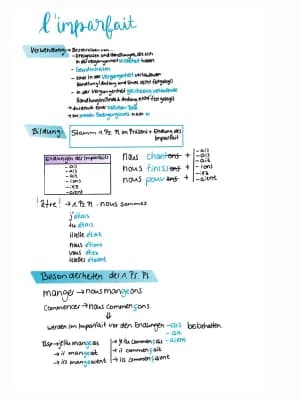 l'imparfait
Verwendung → Beschreiben von
- Ereignissen und Handlungen, die sich in der Vergangenheit wiederholt haben
- Gewohnheiten
- einer in der Vergangenheit verlaufenen Handlung (Anfang und Ende nicht festgelegt)
- in der Vergangenheit gleichzeitig verlaufende Handlungen
→ Ausdruck einer
→ im
Bildung: Stamm 1. Pz. Pl im Präsens + Endung des Imparfait
Endungen des Imparfait
- ais
- ais
- ait
- ions
- iez
- aient
nous chantons +
nous finissons +
nous pouvons +
- ais
- ais
- ait
- ions
- iez
- aient
! être! → 1. Pz. Pl. - nous sommes
j'étais
tu étais
il/elle était
nous étions
vous étiez
ils/elles étaient
Besonderheiten der 1. Ps. Pl
manger → nous mangeons
commencer → nous commençons
⇓
werden im Imparfait vor den Endungen -ais beibehalten
- ait
- aient
Bsp → je/tu mangeais
→ il mangeait
→ ils mangeaient
→ je/tu commençais
→ il commençait
→ ils commençaient